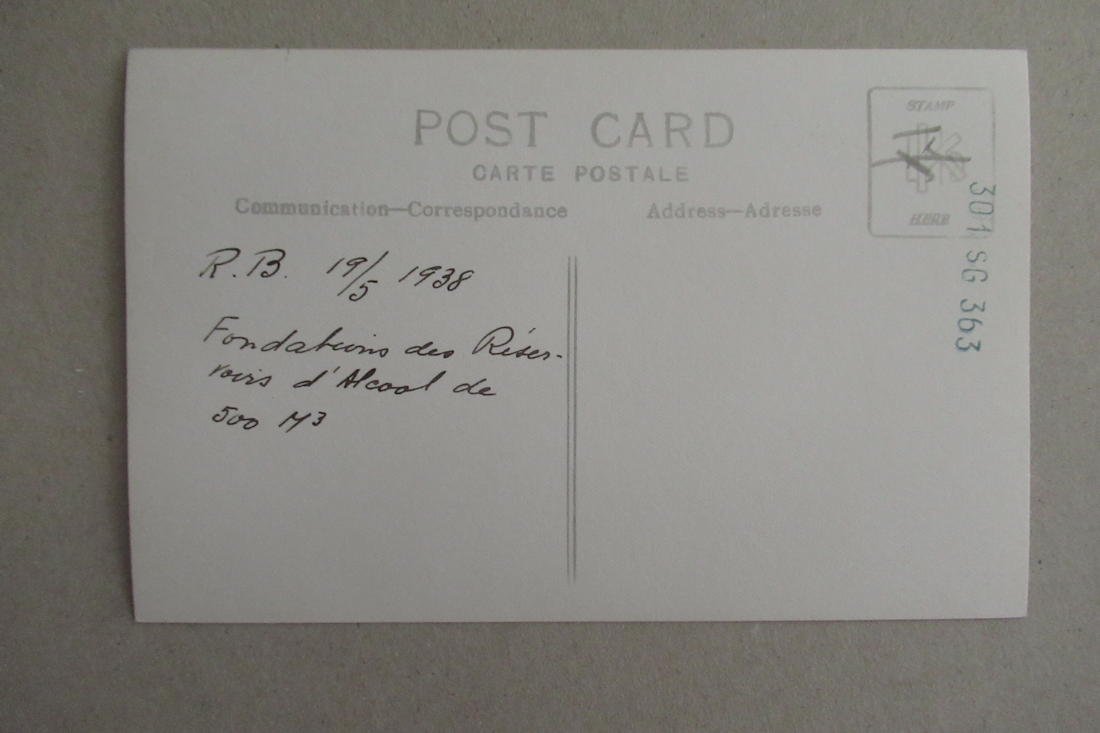 POST CARD
CARTE POSTALE
Communication—Correspondance
Address—Adresse
STAMP
HERE
301 SG 363
R.B. 19/5 1938
Fondations des Réser-
voirs d'Alcool de
500 M3